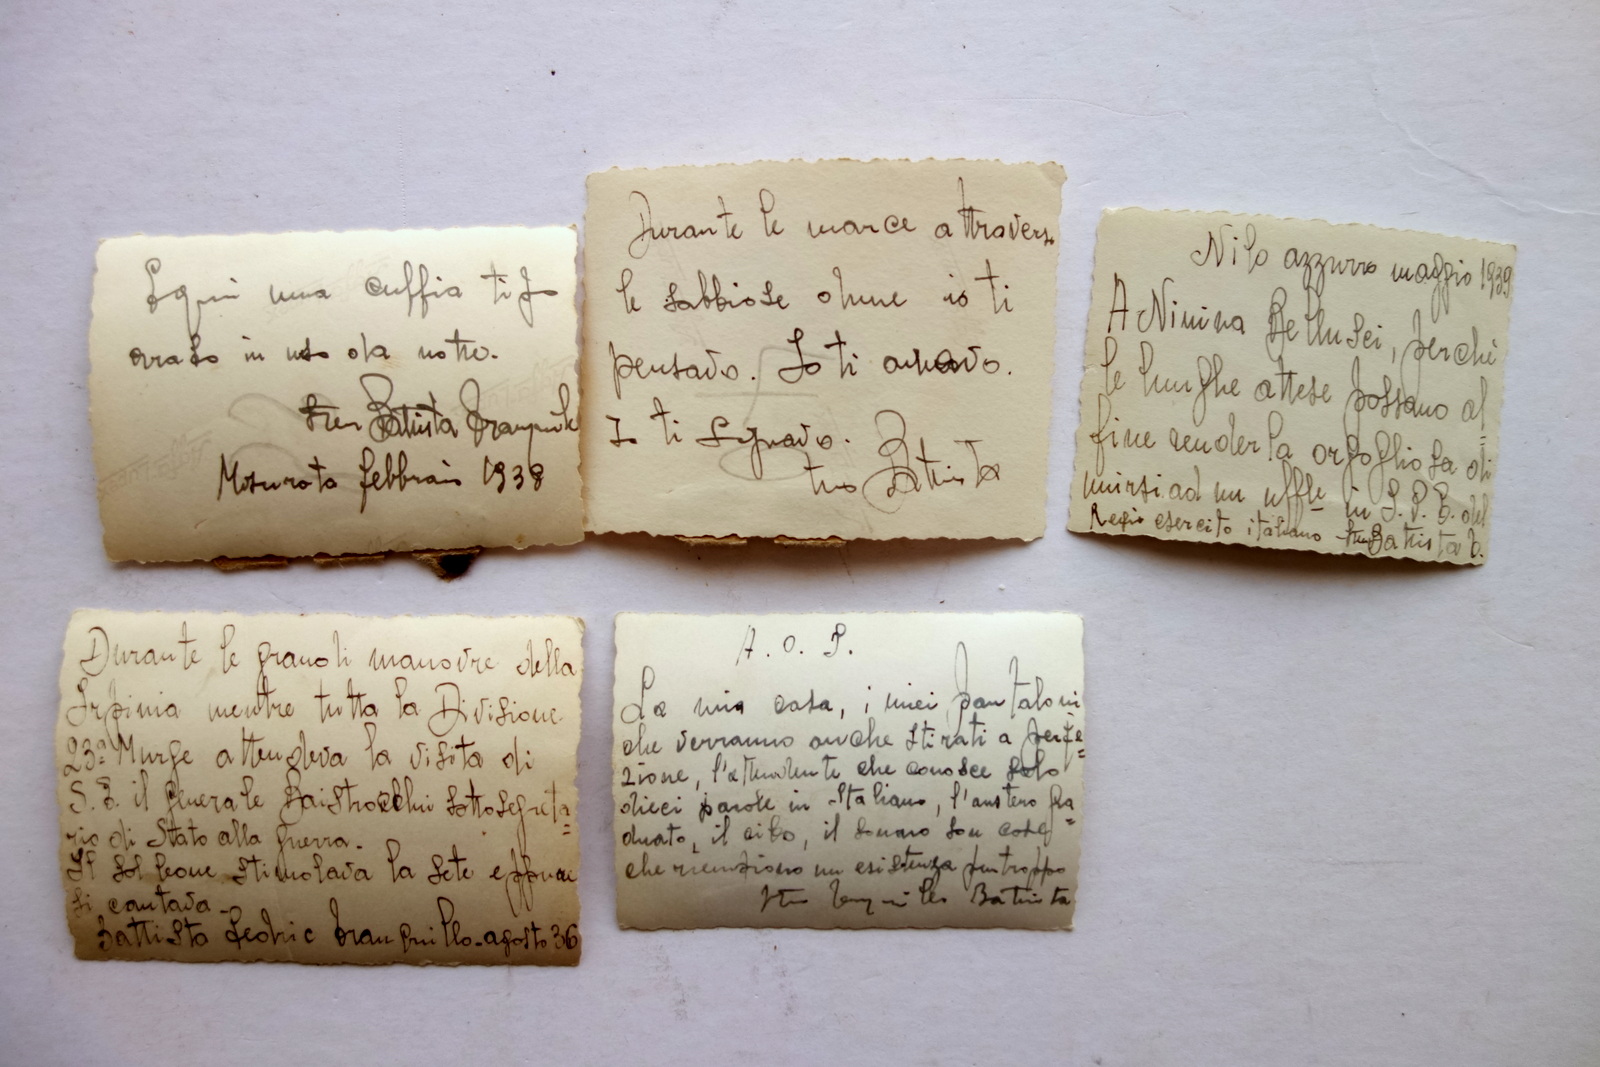 una cuffia ti fo
in uso da notte.
Battista Tranquillo
Misurata febbraio 1938
Durante le marce attraverso
le sabbiose dune io ti
pensavo. Io ti amavo.
Io ti sognavo.
tuo Battista
Nilo azzurro maggio 1939
A Ninina Bellusci, perchè
le lunghe attese possano al=
fine renderla orgogliosa di
unirsi ad un uffle in S.P.E. del
Regio esercito italiano - Battista T.
Durante le grandi manovre della
Irpinia mentre tutta la Divisione
23ª Murge attendeva la visita di
S. E. il generale Baistrocchi sottosegreta=
rio di Stato alla guerra.
Il sol leone stimolava la sete eppure
si cantava -
Battista Tranquillo - agosto 36
A. O. I.
La mia casa, i miei pantaloni
che verranno anche stirati a perfe=
zione, l'attendente che conosce solo
dieci parole in Italiano, l'austero gra=
duato, il cibo, il sonno son cose
che riempiono un esistenza purtroppo
Battista